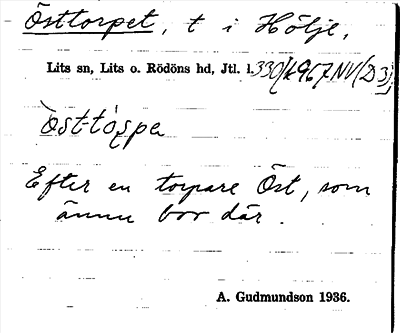 Östtorpet, t i Hölje,
Lits sn, Lits o. Rödöns hd, Jtl.
östtórpa
Efter en torpare Öst, som
ännu bor där.
A. Gudmundson 1936.